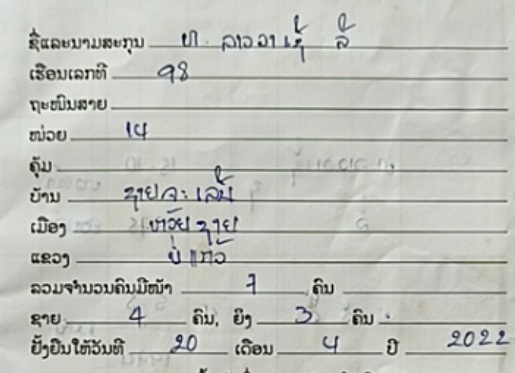 ຊື່ແລະນາມສະກຸນ ທ. ລາວວາເຊັ້ ລໍ້
ເຮືອນເລກທີ 98
ຖະໜົນສາຍ
ໜ່ວຍ 14
ຄຸ້ມ
ບ້ານ ຊາຍຈະເລີນ
ເມືອງ ຫ້ວຍຊາຍ
ແຂວງ ບໍ່ແກ້ວ
ລວມຈຳນວນຄົນມີໜ້າ 7 ຄົນ
ຊາຍ 4 ຄົນ, ຍິງ 3 ຄົນ.
ຢັ້ງຢືນໃຫ້ວັນທີ 20 ເດືອນ 4 ປີ 2022